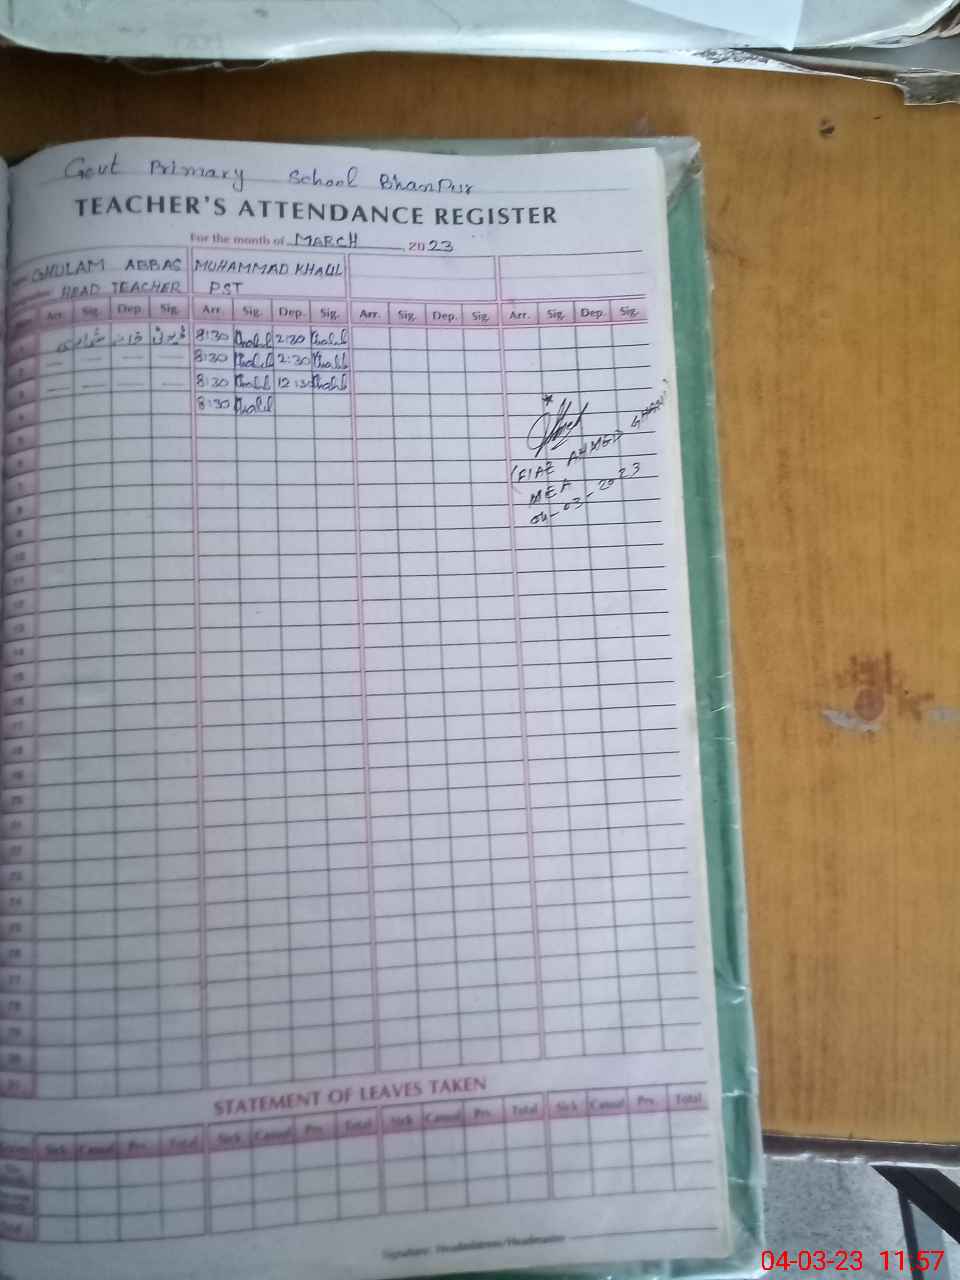 Govt Primary School Bhanpur
TEACHER'S ATTENDANCE REGISTER
For the month of MARCH, 2023
GHULAM ABBAS MUHAMMAD KHALIL
HEAD TEACHER PST
Arr. Sig. Dep. Sig. Arr. Sig. Dep. Sig. Arr. Sig. Dep. Sig. Arr. Sig. Dep. Sig.
1 8:30 Khalil 2:30 Khalil
2 8:30 Khalil 2:30 Khalil
3 8:30 Khalil 12:30 Khalil
4 8:30 Khalil
5
6
7
8
9
10
11
12
13
14
15
16
17
18
19
20
21
22
23
24
25
26
27
28
29
30
31
(FIAZ AHMED GHANI)
MEA
04-03-2023
STATEMENT OF LEAVES TAKEN
Sick Casual Prv. Total Sick Casual Prv. Total Sick Casual Prv. Total Sick Casual Prv. Total
Total
Signature: Headmistress/Headmaster
04-03-23 11:57